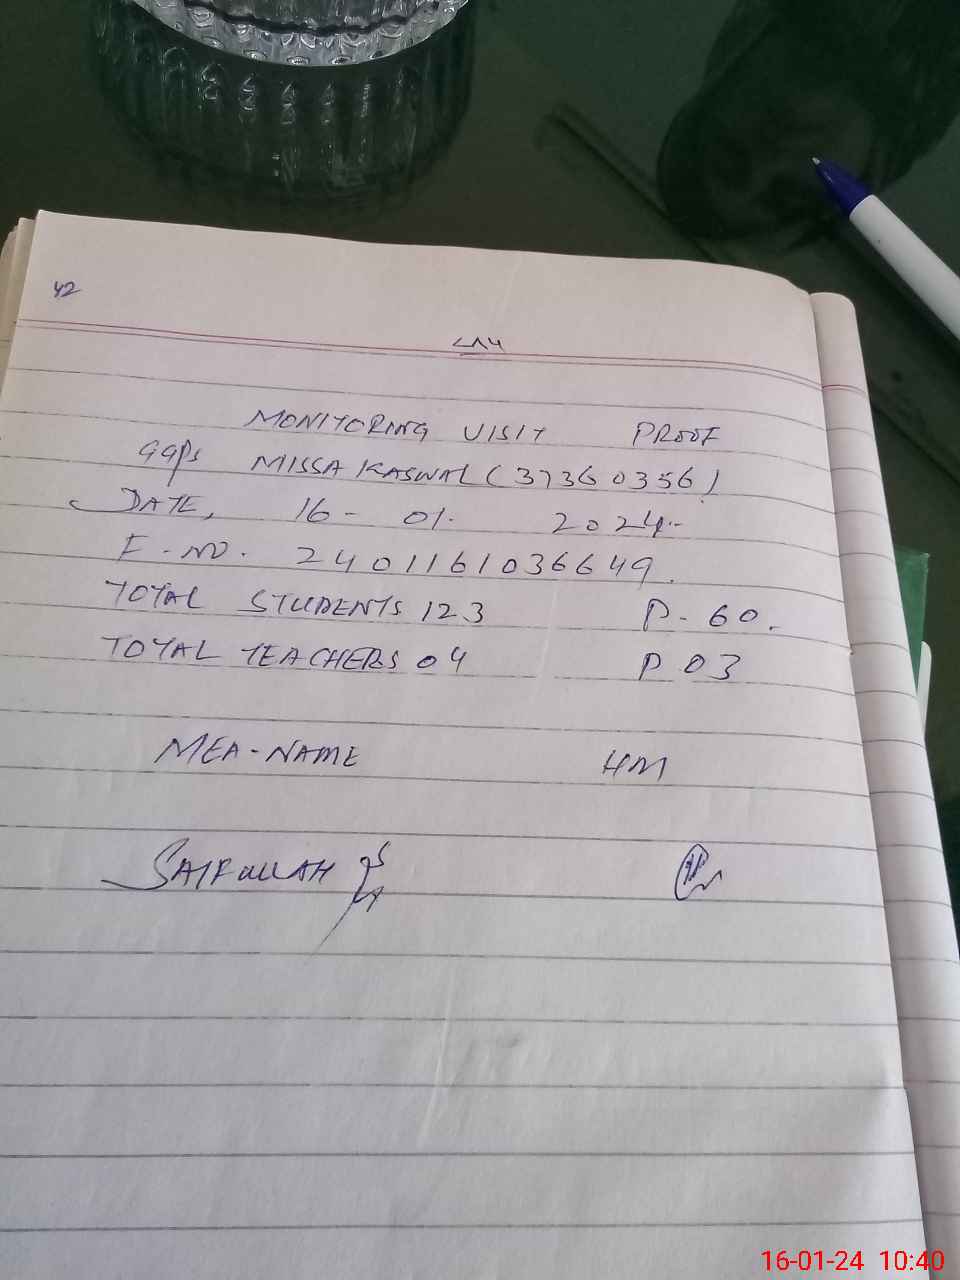 42
MONITORING VISIT PROOF
GGPS MISSA KASWAL (37360356)
DATE, 16 - 01. 2024.-
F-NO. 2401161036649.
TOTAL STUDENTS 123 P- 60.
TOTAL TEACHERS 04 P 03
MEA-NAME HM
SAIFULLAH
16-01-24 10:40